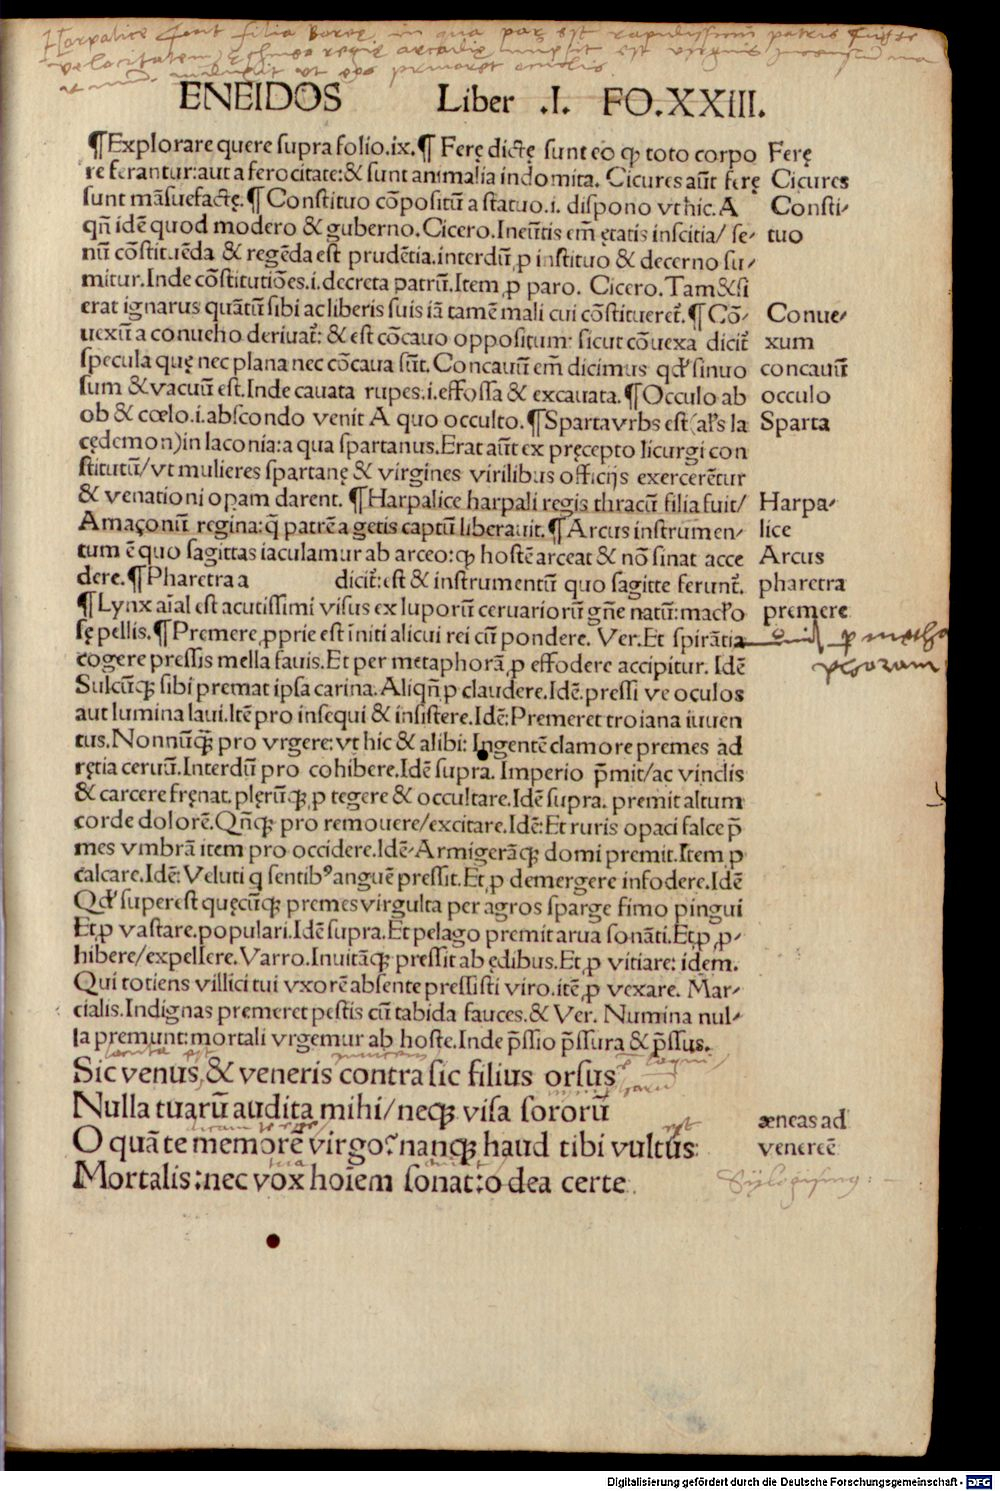 Harpalice fuit filia Boree in qua par est rapidissimi patris fuisse
velocitatem regis arcadie
ut eos privaret oculis
ENEIDOS Liber .I. FO.XXIII.
¶Explorare quere supra folio.ix.¶ Ferę dictę sunt eo ꝙ toto corpo Ferę
re ferantur:aut a ferocitate:& sunt animalia indomita. Cicures aũt ferę Cicures
sunt mãsuefactę.¶ Constituo cõpositũ a statuo.i. dispono vt hic. A Consti-
qñ idẽ quod modero & guberno. Cicero.Ineũtis em̃ ętatis inscitia/ se- tuo
nũ cõstituẽda & regẽda est prudẽtia.interdũ ꝓ instituo & decerno su-
mitur.Inde cõstitutiões.i.decreta patrũ.Item ꝓ paro. Cicero.Tam&si
erat ignarus quãtũ sibi ac liberis suis iã tamẽ mali cui cõstitueret̃.¶Cõ- Conue-
uexũ a conueho deriuat̃: & est cõcauo oppositum: sicut cõuexa dicit̃ xum
specula quę nec plana nec cõcaua sũt. Concauũ em̃ dicimus qd' sinuo concauũ
sum & vacuũ est.Inde cauata rupes.i.effossa & excauata.¶Occulo ab occulo
ob & cœlo.i.abscondo venit A quo occulto.¶Sparta vrbs est(al's la Sparta
cędemon)in laconia:a qua spartanus.Erat aũt ex pręcepto licurgi con
stitutũ/vt mulieres spartanę & virgines virilibus officijs exercerẽtur
& venationi opam darent. ¶Harpalice harpali regis thracũ filia fuit/ Harpa-
Amaçoniũ regina:q̃ patrẽ a getis captũ liberauit.¶Arcus instrumen- lice
tum ẽ quo sagittas iaculamur ab arceo:ꝙ hostẽ arceat & nõ sinat acce Arcus
dere.¶Pharetra a dicit̃:est & instrumentũ quo sagitte ferunt̃. pharetra
¶Lynx aĩal est acutissimi visus ex luporũ ceruariorũ gñe natũ:mac'lo premere
sę pellis.¶Premere ꝓprie est ĩniti alicui rei cũ pondere. Ver.Et spirãtia ꝑ metha
cogere pressis mella fauis.Et per metaphorã ꝓ effodere accipitur. Idẽ phoram
Sulcũqꝫ sibi premat ipsa carina.Aliqñ ꝓ claudere.Idẽ.pressi ve oculos
aut lumina laui.Itẽ pro insequi & insistere.Idẽ:Premeret troiana iuuen
tus.Nonnũqꝫ pro vrgere:vt hic & alibi: Ingentẽ clamore premes ad
rętia ceruũ.Interdũ pro cohibere.Idẽ supra. Imperio p̃mit/ac vinclis
& carcere fręnat.plęrũqꝫ ꝓ tegere & occultare.Idẽ supra. premit altum
corde dolorẽ.Qñqꝫ pro remouere/excitare.Idẽ:Et ruris opaci falce p̃
mes vmbrã item pro occidere.Idẽ-Armigerãqꝫ domi premit.Item ꝓ
calcare.Idẽ:Veluti q sentibꝰ anguẽ pressit.Et ꝓ demergere infodere.Idẽ
Qd' superest quęcũqꝫ premes virgulta per agros sparge fimo pingui
Et ꝓ vastare.populari.Idẽ supra.Et pelago premit arua sonãti.Et ꝓ ꝓ-
hibere/expellere.Varro.Inuitãqꝫ pressit ab ędibus.Et ꝓ vitiare: idem.
Qui totiens villici tui vxorẽ absente pressisti viro.itẽ ꝓ vexare. Mar-
cialis.Indignas premeret pestis cũ tabida fauces.& Ver. Numina nul-
la premunt:mortali vrgemur ab hoste.Inde p̃ssio p̃ssura & p̃ssus.
Sic venus, & veneris contra sic filius orsus
Nulla tuarũ audita mihi/neqꝫ visa sororũ
O quã te memorẽ virgo? nanqꝫ haud tibi vultus: æneas ad
Mortalis:nec vox hoĩem sonat:o dea certe. venereẽ
Digitalisierung gefördert durch die Deutsche Forschungsgemeinschaft - DFG